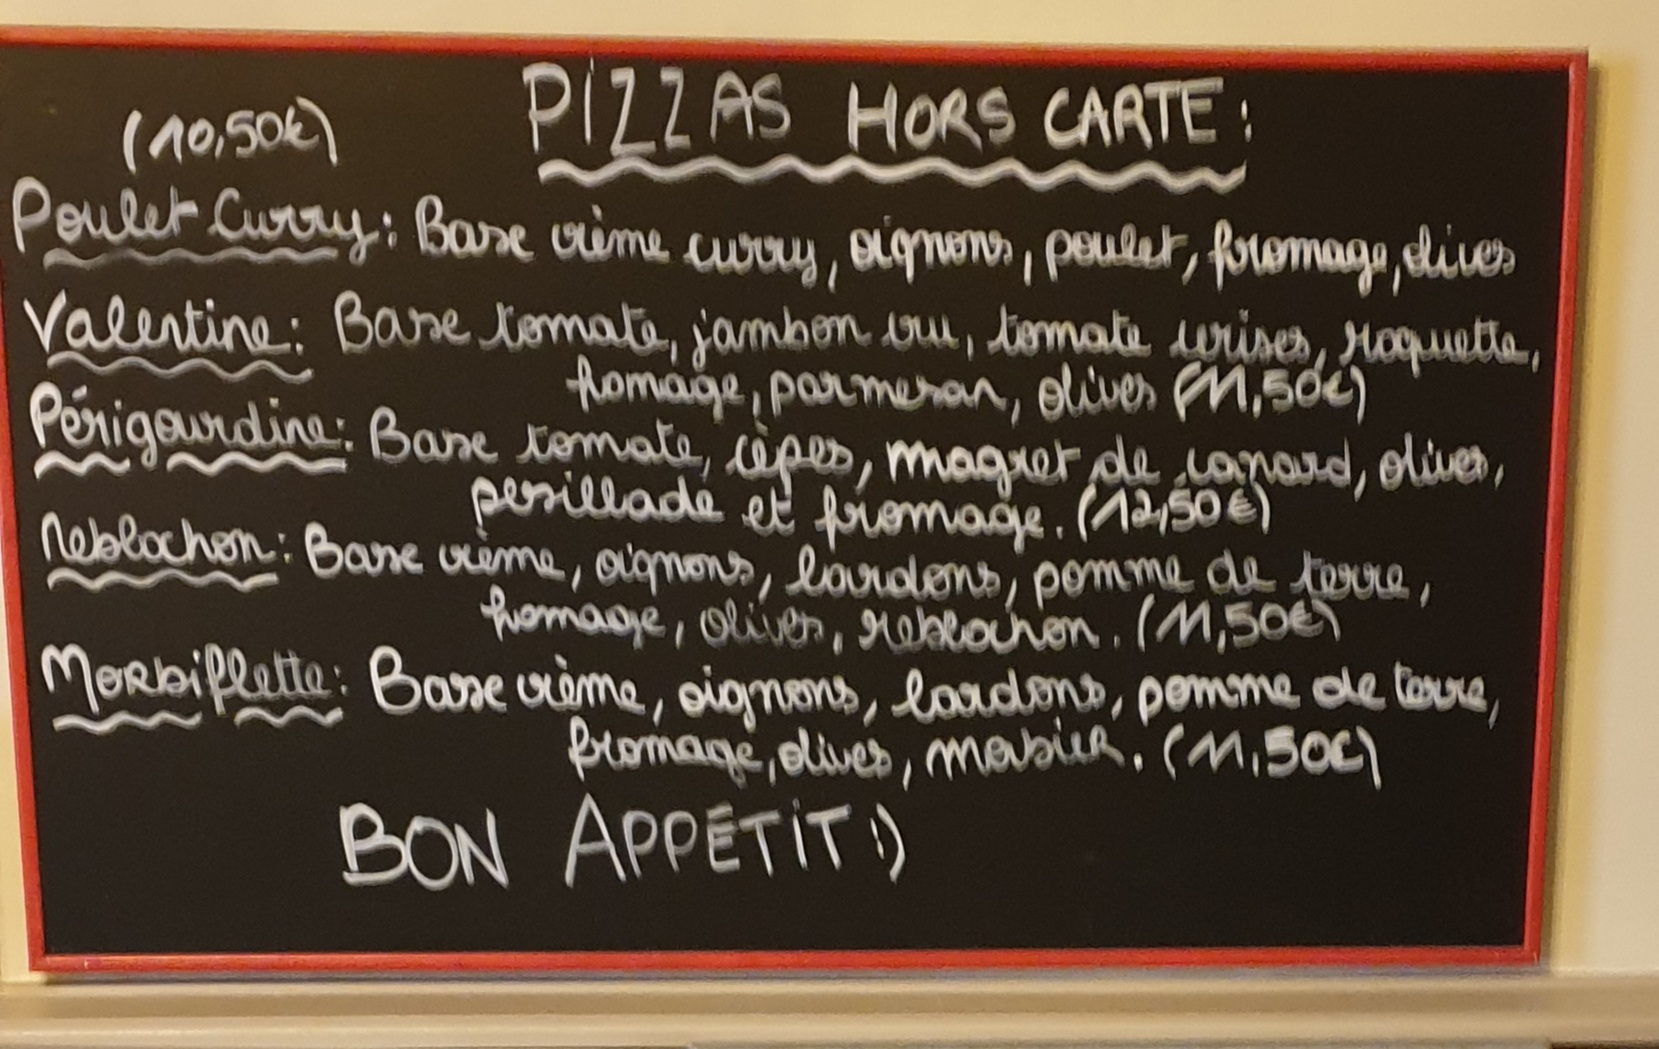 PIZZAS HORS CARTE :
(10,50€)
Poulet Curry : Base crème curry, oignons, poulet, fromage, olives
Valentine : Base tomate, jambon cru, tomate cerises, roquette,
fromage, parmesan, olives (11,50€)
Périgourdine : Base tomate, cèpes, magret de canard, olives,
persillade et fromage. (12,50€)
Reblochon : Base crème, oignons, lardons, pomme de terre,
fromage, olives, reblochon. (11,50€)
Morbiflette : Base crème, oignons, lardons, pomme de terre,
fromage, olives, morbier. (11,50€)
BON APPÉTIT :)